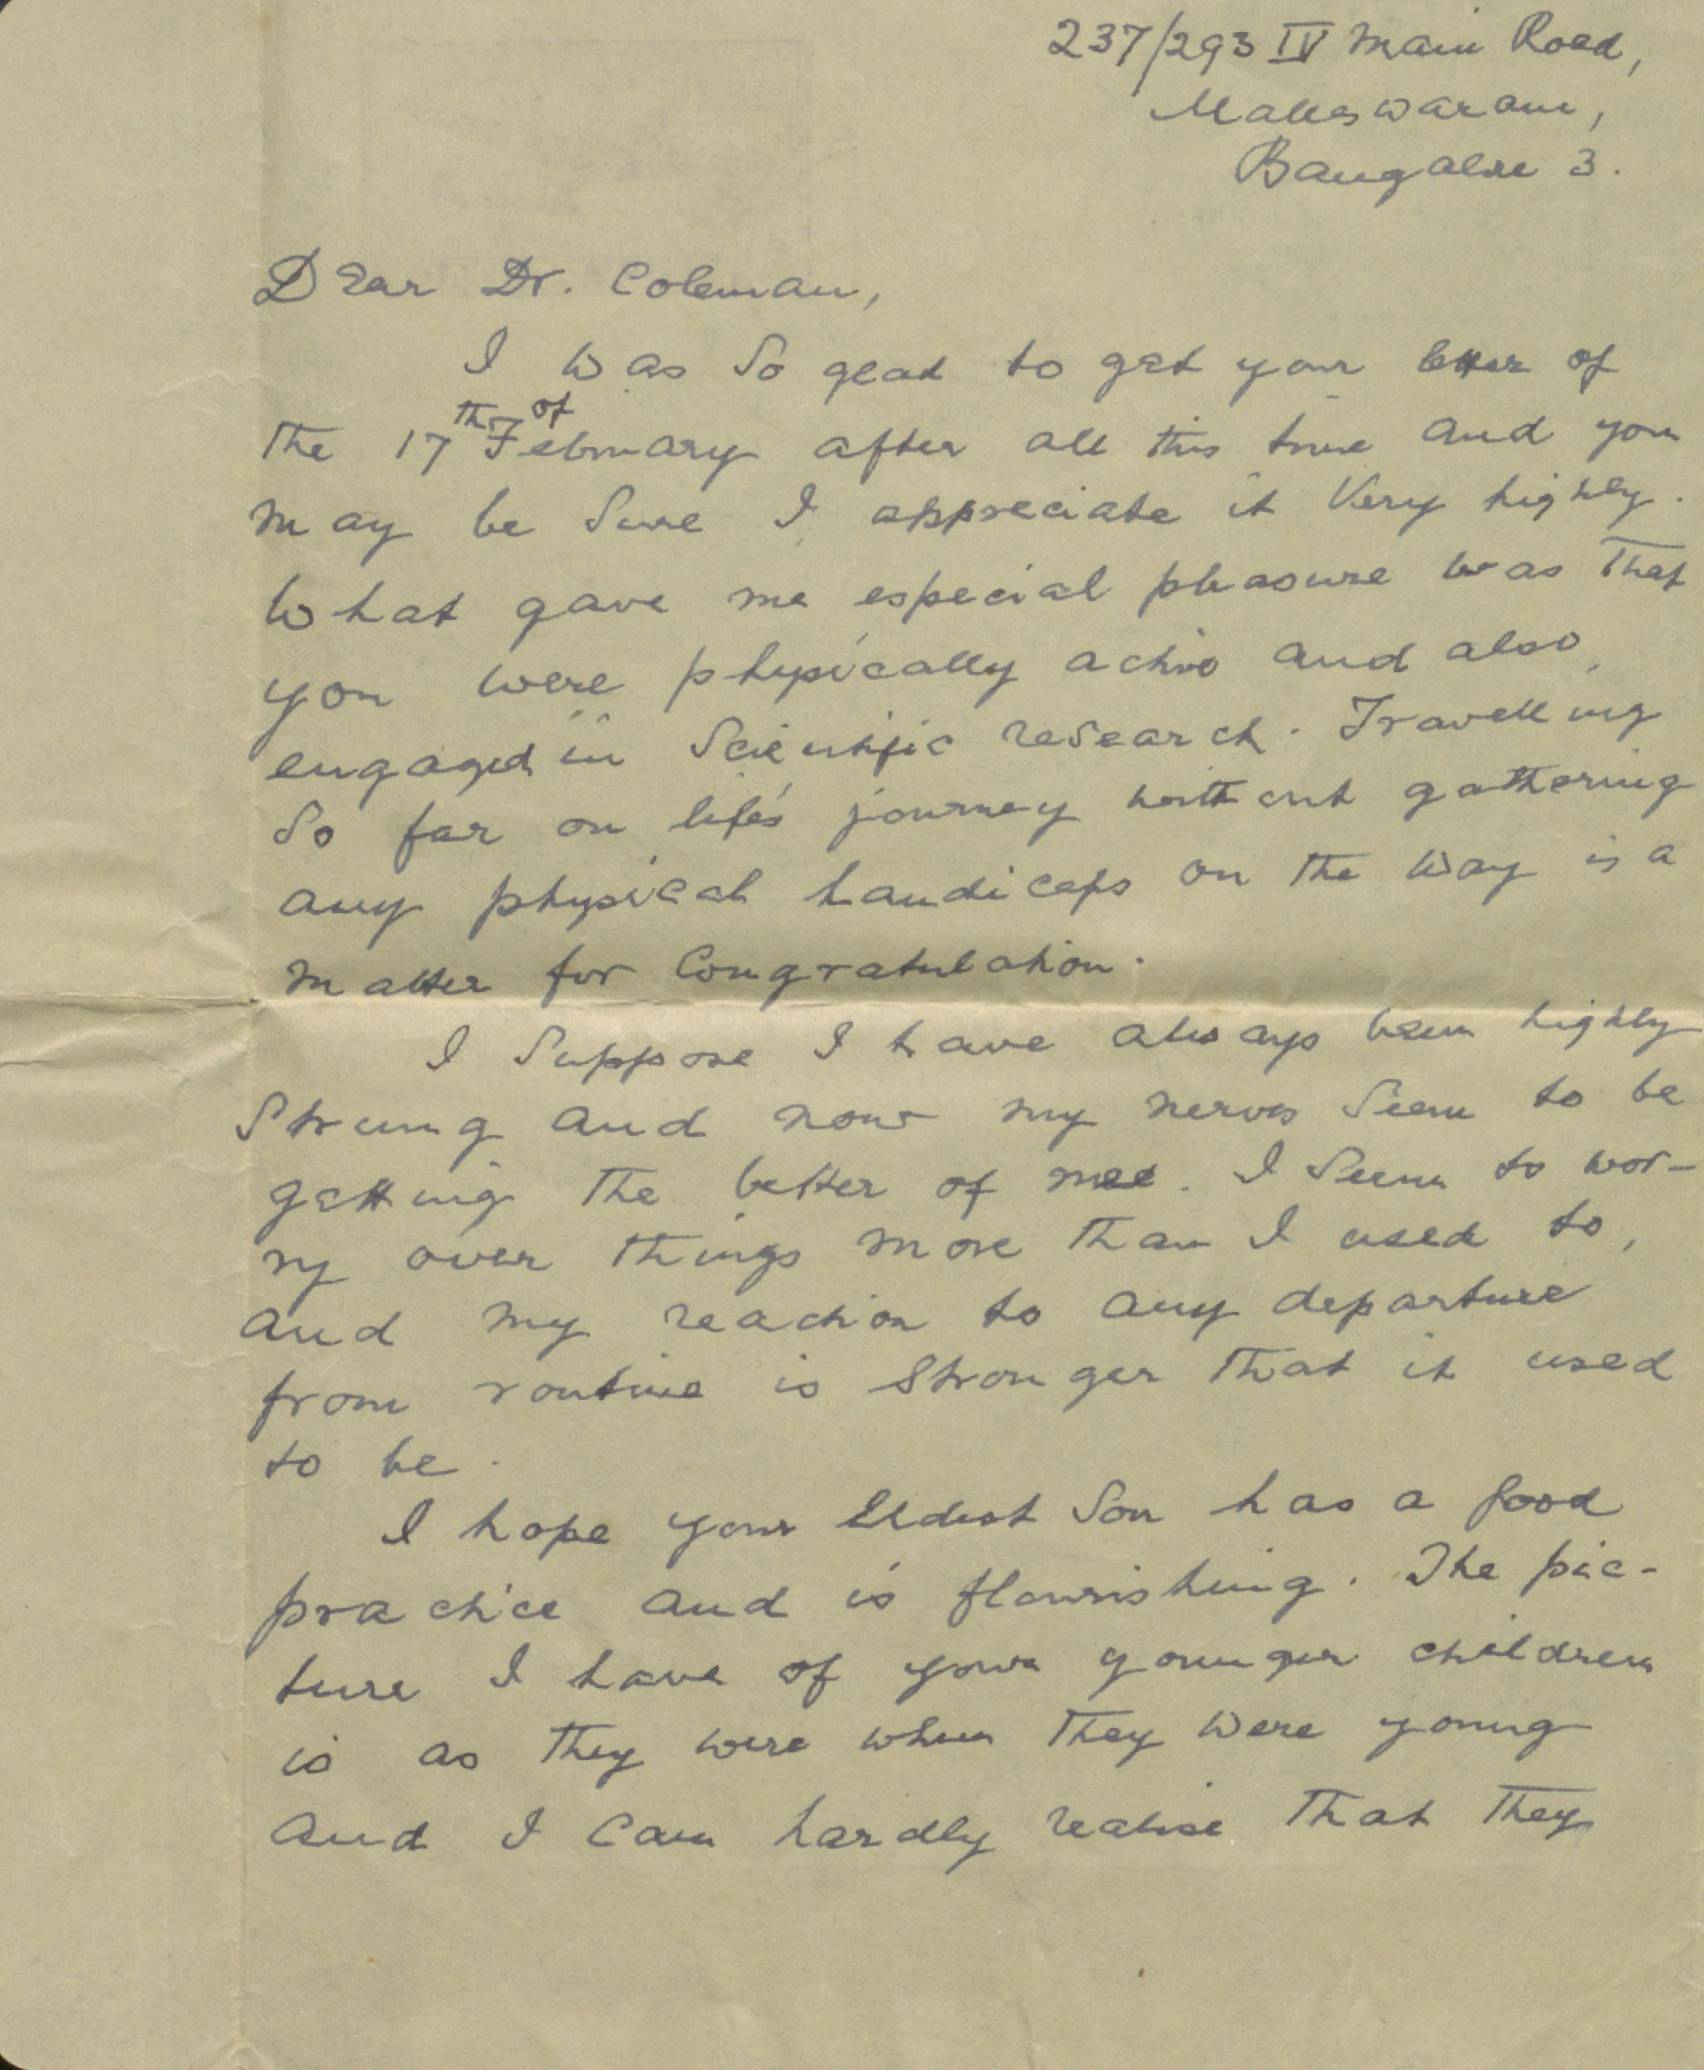 237/293 IV Main Road,
Malleswaram,
Bangalore 3.
Dear Dr. Coleman,
I was so glad to get your letter of
the 17th of February after all this time and you
may be sure I appreciate it very highly.
What gave me especial pleasure was that
you were physically active and also
engaged in scientific research. Travelling
so far on life's journey without gathering
any physical handicaps on the way is a
matter for congratulation.
I suppose I have always been highly
strung and now my nerves seem to be
getting the better of me. I seem to wor-
ry over things more than I used to,
and my reaction to any departure
from routine is stronger that it used
to be.
I hope your eldest son has a good
practice and is flourishing. The pic-
ture I have of your younger children
is as they were when they were young
and I can hardly realise that they